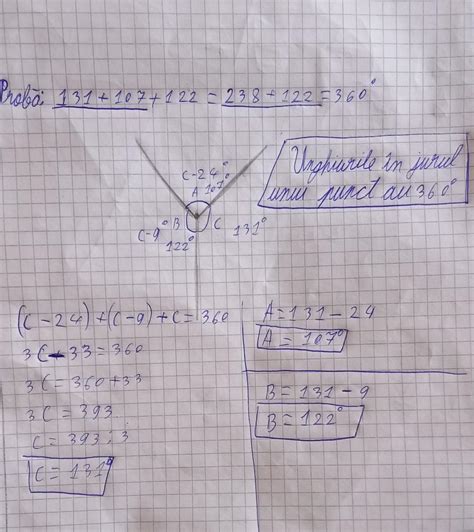 Probă: 131 + 107 + 122 = 238 + 122 = 360°
Unghiurile în jurul
unui punct au 360°
C-24°
A 107°
B
C
C-9°
122°
131°
(C - 24) + (C - 9) + C = 360
3C - 33 = 360
3C = 360 + 33
3C = 393
C = 393 : 3
C = 131°
A = 131 - 24
A = 107°
B = 131 - 9
B = 122°